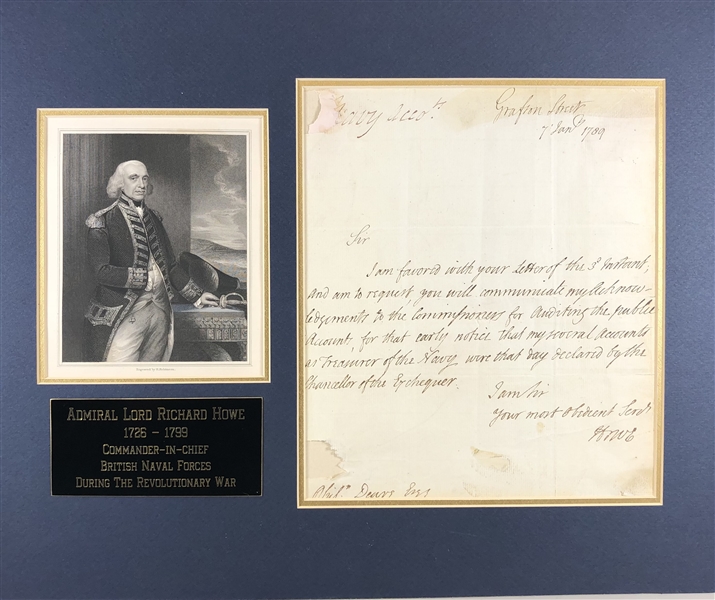 Navy Accots.
Grafton Street
7 Jany. 1789
Sir
I am favored with your Letter of the 3d Instant,
and am to request you will communicate my Acknow-
ledgements to the Commissioners for Auditing the public
Account, for that early notice that my several Accounts
as Treasurer of the Navy were that day declared by the
Chancellor of the Exchequer.
I am Sir
Your most Obedient Servt
Howe
Philn Deare Esqr
ADMIRAL LORD RICHARD HOWE
1726 – 1799
COMMANDER-IN-CHIEF
BRITISH NAVAL FORCES
DURING THE REVOLUTIONARY WAR